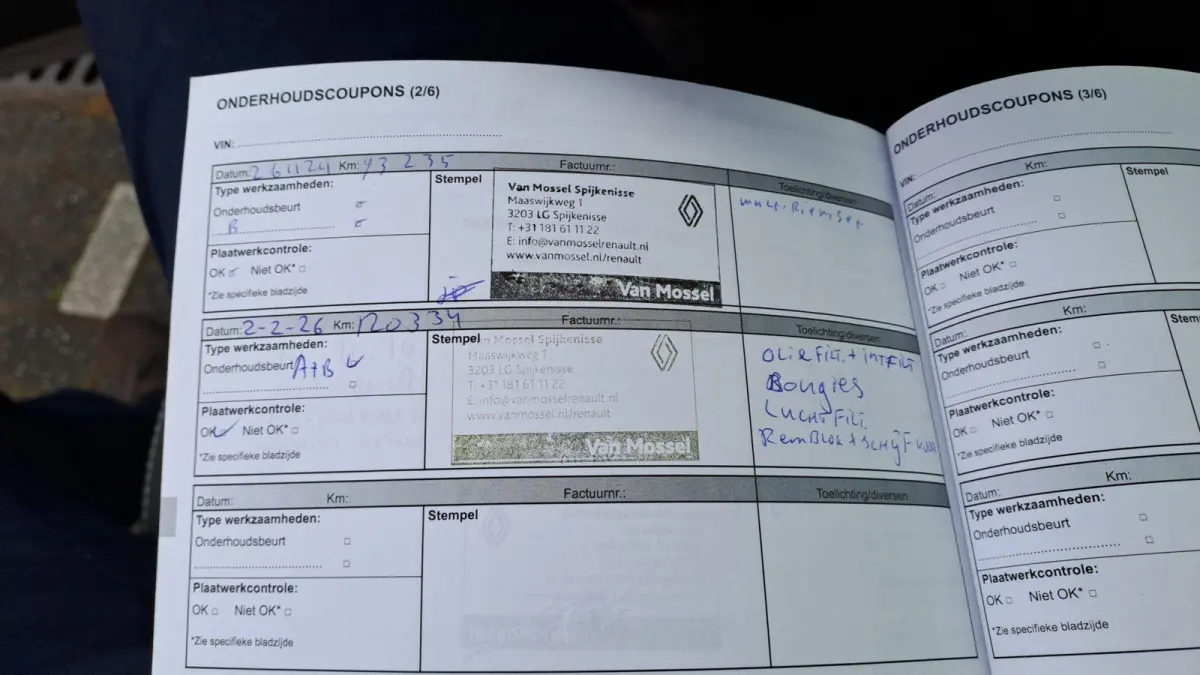 ONDERHOUDSCOUPONS (2/6)
VIN:
Datum: 261124 Km: 93 235 Factuurnr.: Toelichting/diversen
Type werkzaamheden:
Onderhoudsbeurt
B
Plaatwerkcontrole:
OK Niet OK*
*Zie specifieke bladzijde
Stempel
Van Mossel Spijkenisse
Maaswijkweg 1
3203 LG Spijkenisse
T: +31 181 61 11 22
E: info@vanmosselrenault.nl
www.vanmosselrenault.nl/renault
Van Mossel
Datum: 2-2-26 Km: 120334 Factuurnr.: Toelichting/diversen
Type werkzaamheden:
Onderhoudsbeurt A+B
Plaatwerkcontrole:
OK Niet OK*
*Zie specifieke bladzijde
Stempel
Van Mossel Spijkenisse
Maaswijkweg 1
3203 LG Spijkenisse
T: +31 181 61 11 22
E: info@vanmosselrenault.nl
www.vanmossel.nl/renault
Van Mossel
OLieFiLT. + INTFILT
Bougies
LUCHTFILT
RemBLok + SCHIJF
Datum: Km: Factuurnr.: Toelichting/diversen
Type werkzaamheden:
Onderhoudsbeurt
Plaatwerkcontrole:
OK Niet OK*
*Zie specifieke bladzijde
Stempel
ONDERHOUDSCOUPONS (3/6)
VIN:
Datum: Km:
Type werkzaamheden:
Onderhoudsbeurt
Plaatwerkcontrole:
OK Niet OK*
*Zie specifieke bladzijde
Stempel
Datum: Km:
Type werkzaamheden:
Onderhoudsbeurt
Plaatwerkcontrole:
OK Niet OK*
*Zie specifieke bladzijde
Stem
Datum: Km:
Type werkzaamheden:
Onderhoudsbeurt
Plaatwerkcontrole:
OK Niet OK*
*Zie specifieke bladzijde